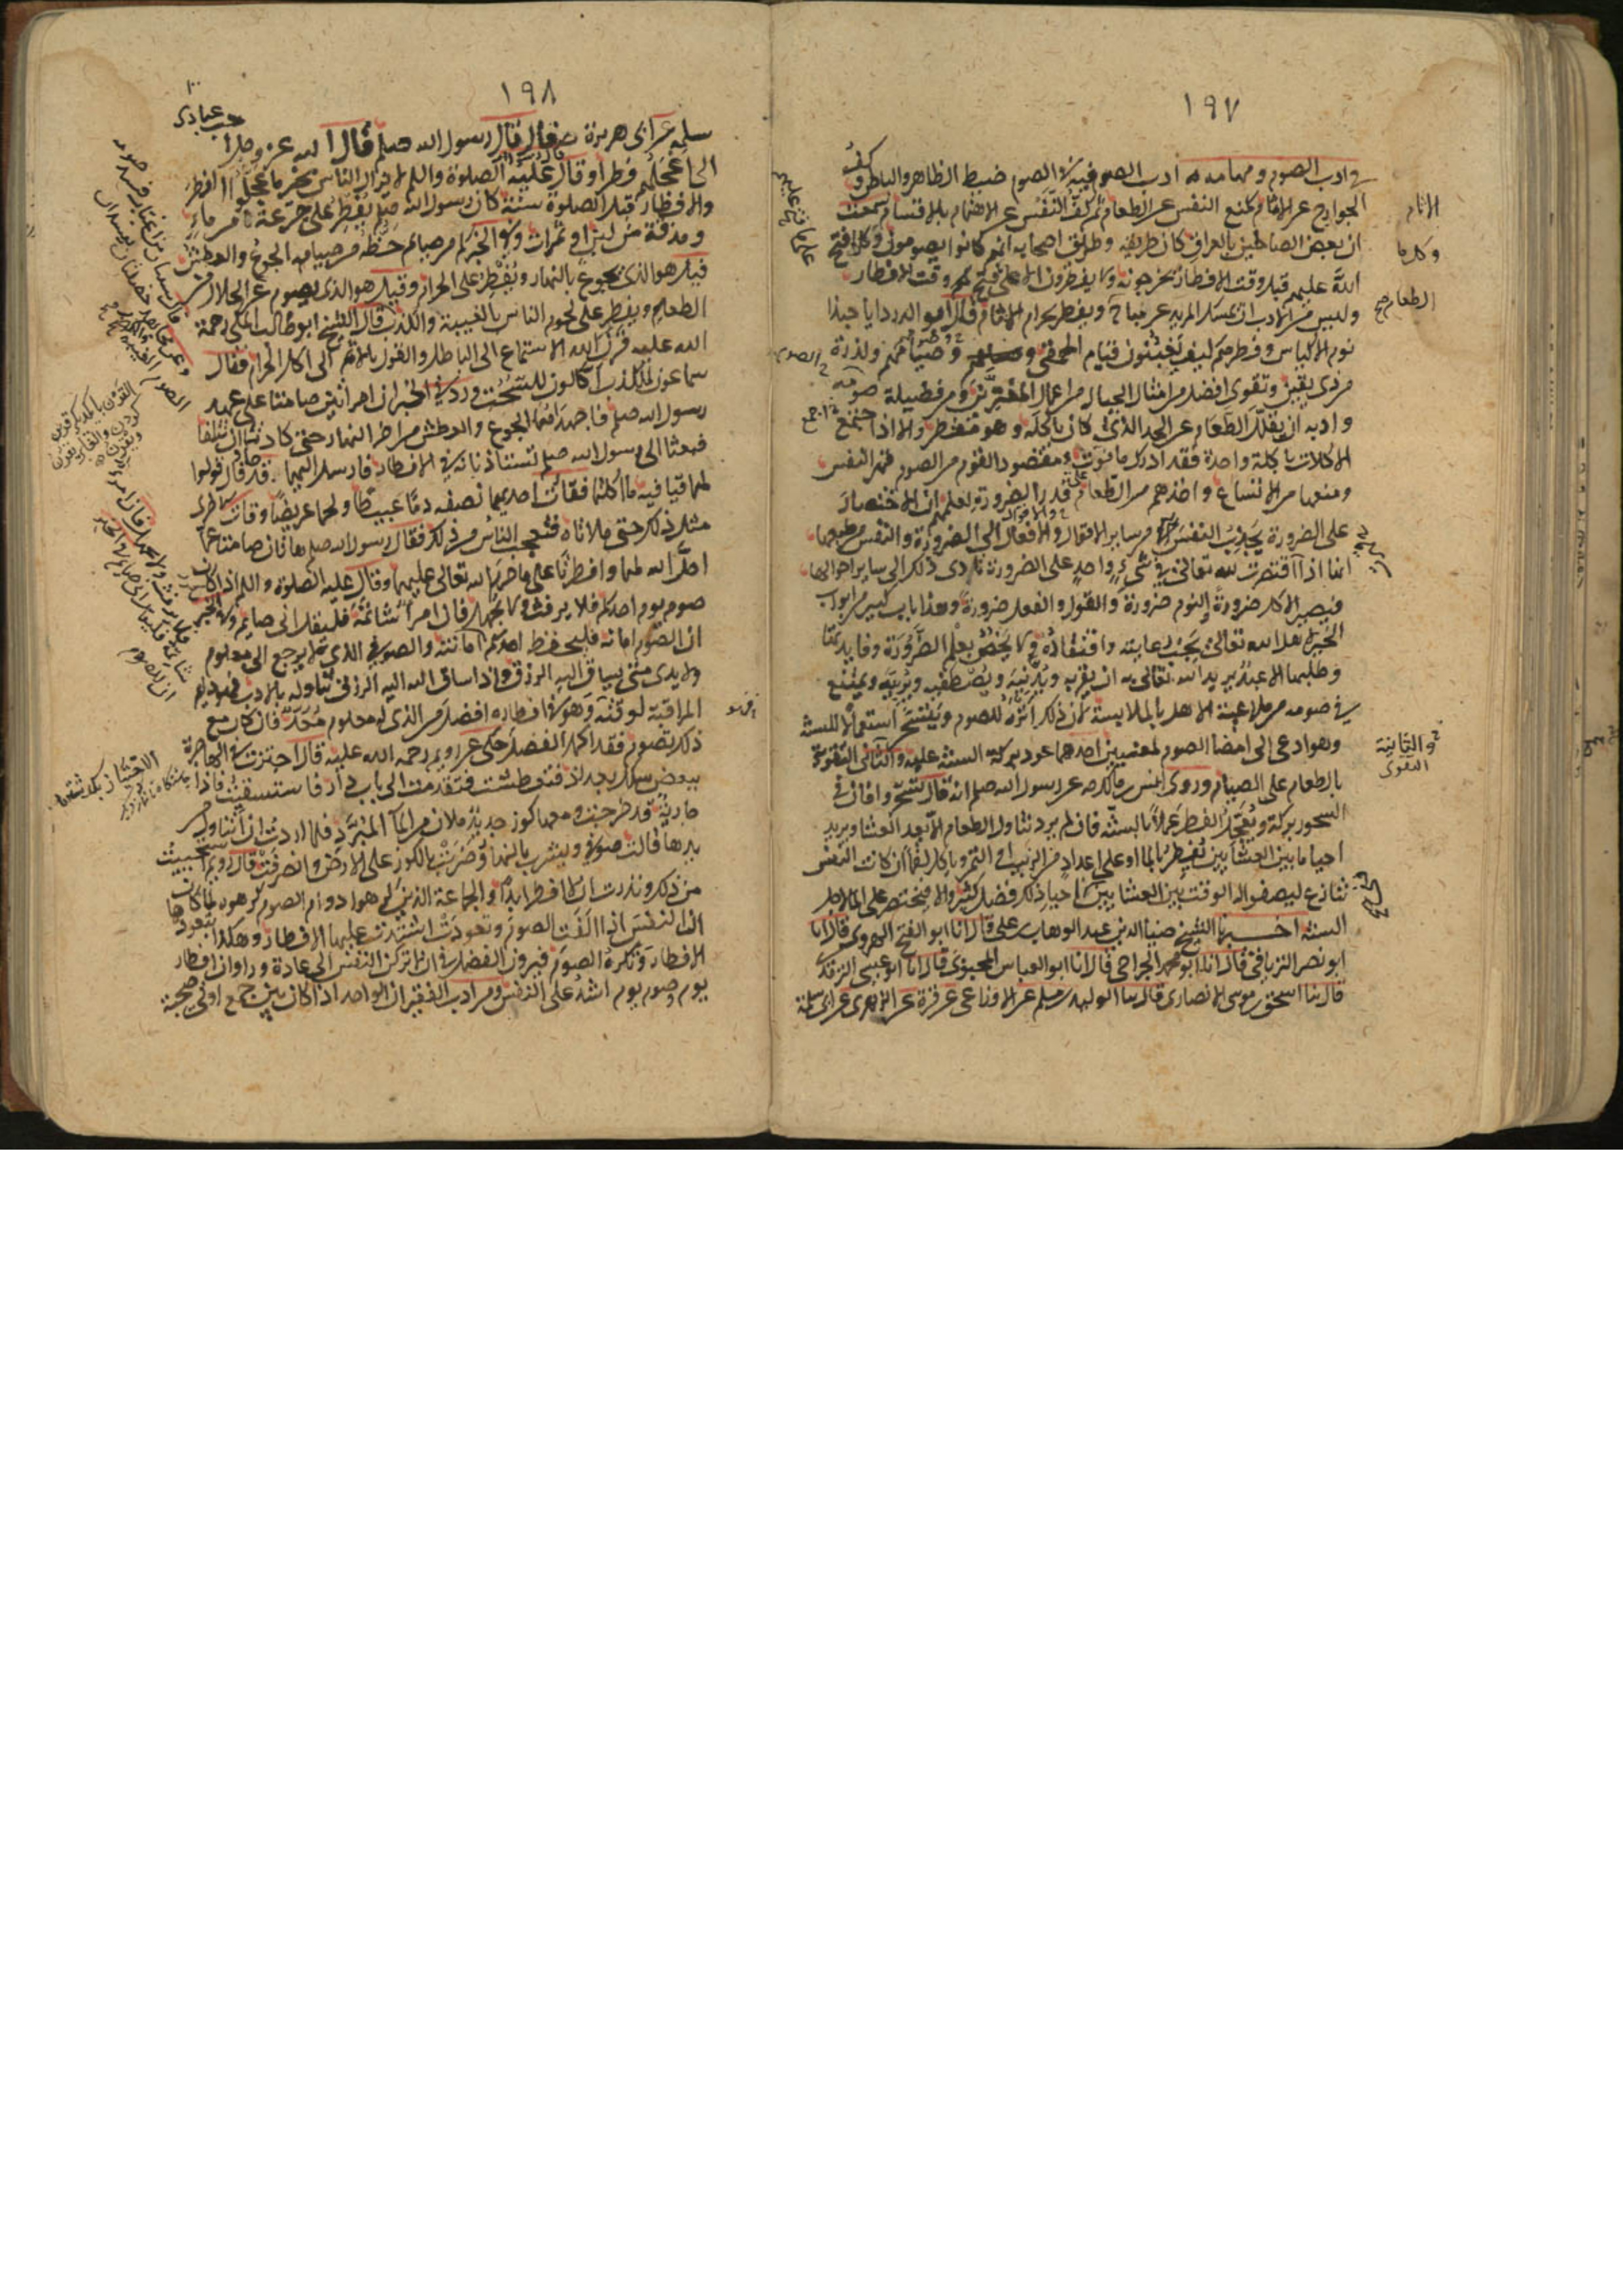 ١٩٧
في ادب الصوم ومهامه ادب الصوفية في الصوم ضبط الظاهر والباطن وكف
الجوارح عن الاثام كمنع النفس عن الطعام ثم كف النفس عن الاهتمام بالاقسام سمعت
ان بعض الصالحين بالعراق كان طريقه وطريق اصحابه انهم كانوا يصومون وكلما فتح
الله عليهم قبل وقت الافطار يخرجونه ولا يفطرون الا على ما فتح لهم وقت الافطار
وليس من الادب ان يمسك المريد عن مباح ويفطر بحرام الاثام قال ابو الدرداء يا حبذا
نوم الاكياس وفطرهم كيف يغبنون قيام الحمقى وصيامهم ولذرة
من ذي يقين وتقوى افضل من امثال الجبال من اعمال المغترين ومن فضيلة صومه
وادبه ان يقلل الطعام عن الحد الذي كان ياكله وهو مفطر والا اذا جمع
الاكلات باكلة واحدة فقد ادرك ما فوت ومقصود القوم من الصوم قهر النفس
ومنعها من الاتساع واخذهم من الطعام قدر الضرورة لعلمهم ان الاقتصار
على الضرورة يجذب النفس من ساير الافعال والاقوال الى الضرورة والنفس من طبعها
انها اذا اقتصرت لله تعالى في شيء واحد على الضرورة تادى ذلك الى ساير احوالها
فيصير الاكل ضرورة والنوم ضرورة والقول والفعل ضرورة وهذا باب كبير من ابواب
الخير لاهل الله تعالى يجب رعايته وافتقاده ولا يخص بعلم الضرورة وفايدتها
وطلبها الا عبد يريد الله تعالى ان يقربه ويدنيه ويصطفيه ويربيه ويمتنع
في صومه من ملاعبة الاهل بالملامسة فان ذلك انزه للصوم ويتسحر استعمالا للسنة
وهو ادعى الى امضاء الصوم لمعنيين احدهما عود بركة السنة عليه والثاني التقوية
بالطعام على الصيام وروى انس بن مالك عن رسول الله صلعم انه قال تسحروا فان في
السحور بركة ويعجل الفطر عملا بالسنة فان لم يرد تناول الطعام الا بعد العشاء ويريد
احياء ما بين العشايين يفطر بالماء او على اعداد من الزبيب او التمر وياكل لقما ان كانت النفس
تنازع ليصفو له الوقت بين العشايين فاحياء ذلك فضل كثير والا فيقتصر على الماء لاجل
السنة اخبرنا الشيخ ضياء الدين عبد الوهاب بن علي قال انا ابو الفتح الهروي قال انا
ابو نصر الترياقي قال انا ابو محمد الجراحي قال انا ابو العباس المحبوبي قال انا ابو عيسى الترمذي
قال ثنا اسحق بن موسى الانصاري قال ثنا الوليد بن مسلم عن الاوزاعي عن قرة عن الزهري عن ابي سلمة
الاثام
وكلما
الطعام صح
والثانية
التقوى
١٩٨
سلمة عن ابي هريرة رضه قال قال رسول الله صلعم قال الله عز وجل
الى اعجلهم فطرا وقال عليه الصلوة والسلم لا يزال الناس بخير ما عجلوا الفطر
والافطار قبل الصلوة سنة كان رسول الله صلعم يفطر على جرعة من ماء
او مذقة من لبن او تمرات وفي الخبر كم من صايم حظه من صيامه الجوع والعطش
قيل هو الذي يجوع بالنهار ويفطر على الحرام وقيل هو الذي يصوم عن الحلال من
الطعام ويفطر على لحوم الناس بالغيبة والكذب قال الشيخ ابو طالب المكي رحمة
الله عليه قرن الله الاستماع الى الباطل والقول بالاثم الى اكل الحرام فقال
سماعون للكذب اكالون للسحت وورد في الخبر ان امراتين صامتا على عهد
رسول الله صلعم فاجهدهما الجوع والعطش من اخر النهار حتى كادتا ان تتلفا
فبعثتا الى رسول الله صلعم تستاذنانه في الافطار فارسل اليهما قدحا وقال قولوا
لهما قيا فيه ما اكلتما فقات احديهما نصفه دما عبيطا ولحما غريضا وقات الاخرى
مثل ذلك حتى ملاتاه فتعجب الناس من ذلك فقال رسول الله صلعم هاتان صامتا عما
احل الله لهما وافطرتا على ما حرم الله تعالى عليهما وقال عليه الصلوة والسلم اذا كان
صوم يوم احدكم فلا يرفث ولا يجهل فان امرا شاتمه فليقل اني صايم وفي الخبر
ان الصوم امانة فليحفظ احدكم امانته والصوفي الذي لا يرجع الى معلوم
ولا يدري متى يساق اليه الرزق واذا ساق الله اليه الرزق تناوله بالادب وهو دايم
المراقبة لوقته وهو في افطاره افضل من الذي له معلوم معد فان كان مع
ذلك يصوم فقد اكمل الفضل حكي عن رويم رحمة الله عليه قال اجتزت في الهاجرة
ببعض سكك بغداذ فعطشت فتقدمت الى باب دار فاستسقيت فاذا
جارية قد خرجت ومعها كوز جديد ملان من الماء المبرد فلما اردت ان اتناول من
يدها قالت صوفي ويشرب بالنهار وضربت بالكوز على الارض وانصرفت قال رويم فاستحييت
من ذلك ونذرت ان لا افطر ابدا والجماعة الذين كرهوا دوام الصوم كرهوه لمكان
ان النفس اذا الفت الصوم وتعودت اشتد عليها الافطار وهكذا بتعودها
الافطار وتكره الصوم فيرون الفضل في ان لا تركن النفس الى عادة وراوا ان افطار
يوم وصوم يوم اشد على النفس ومن ادب الفقير ان الواحد اذا كان بين جمع او في صحبة